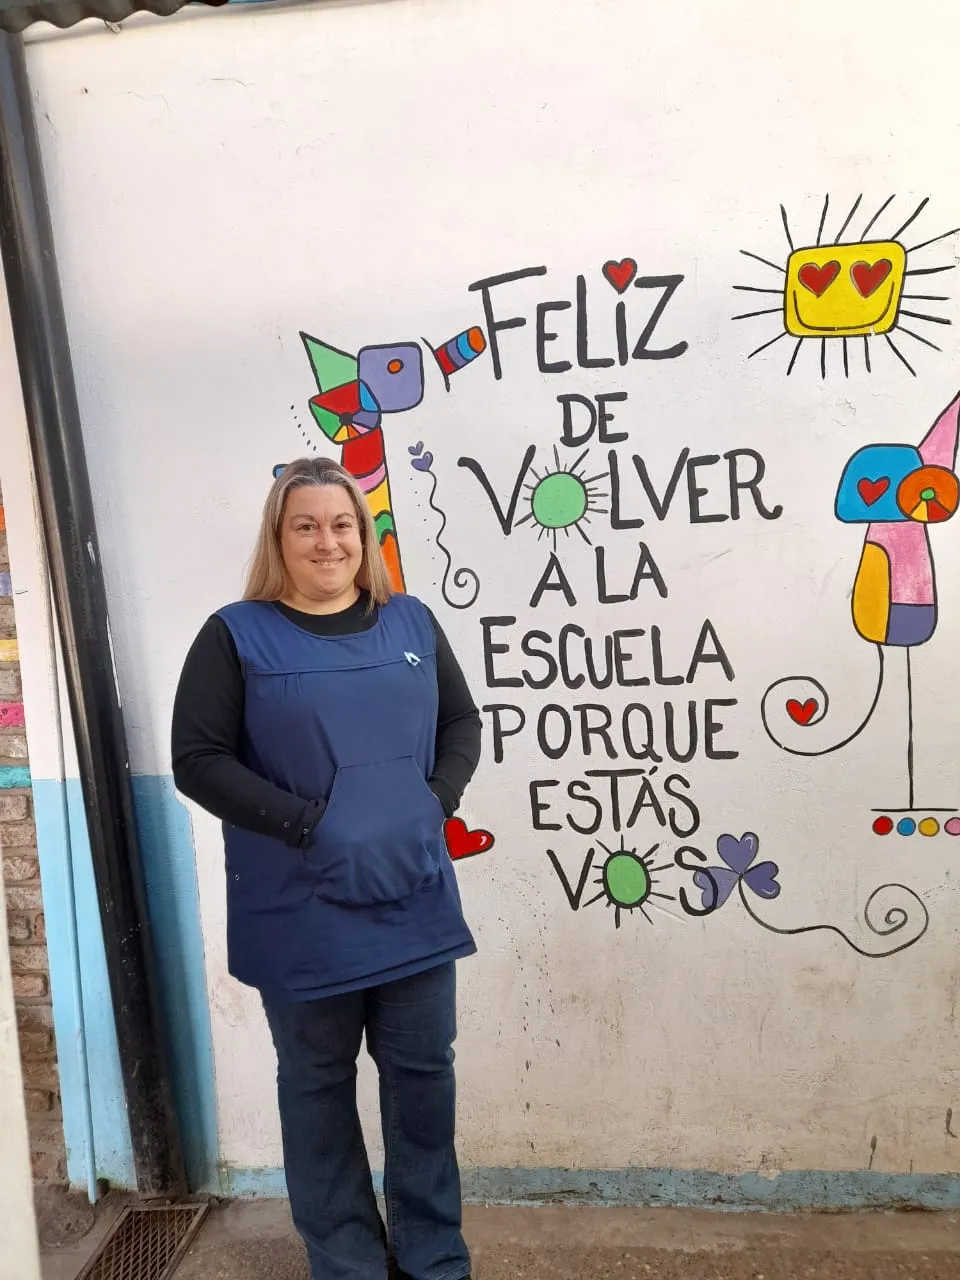 FELiZ
DE
VOLVER
A LA
ESCUELA
PORQUE
ESTÁS
VOS